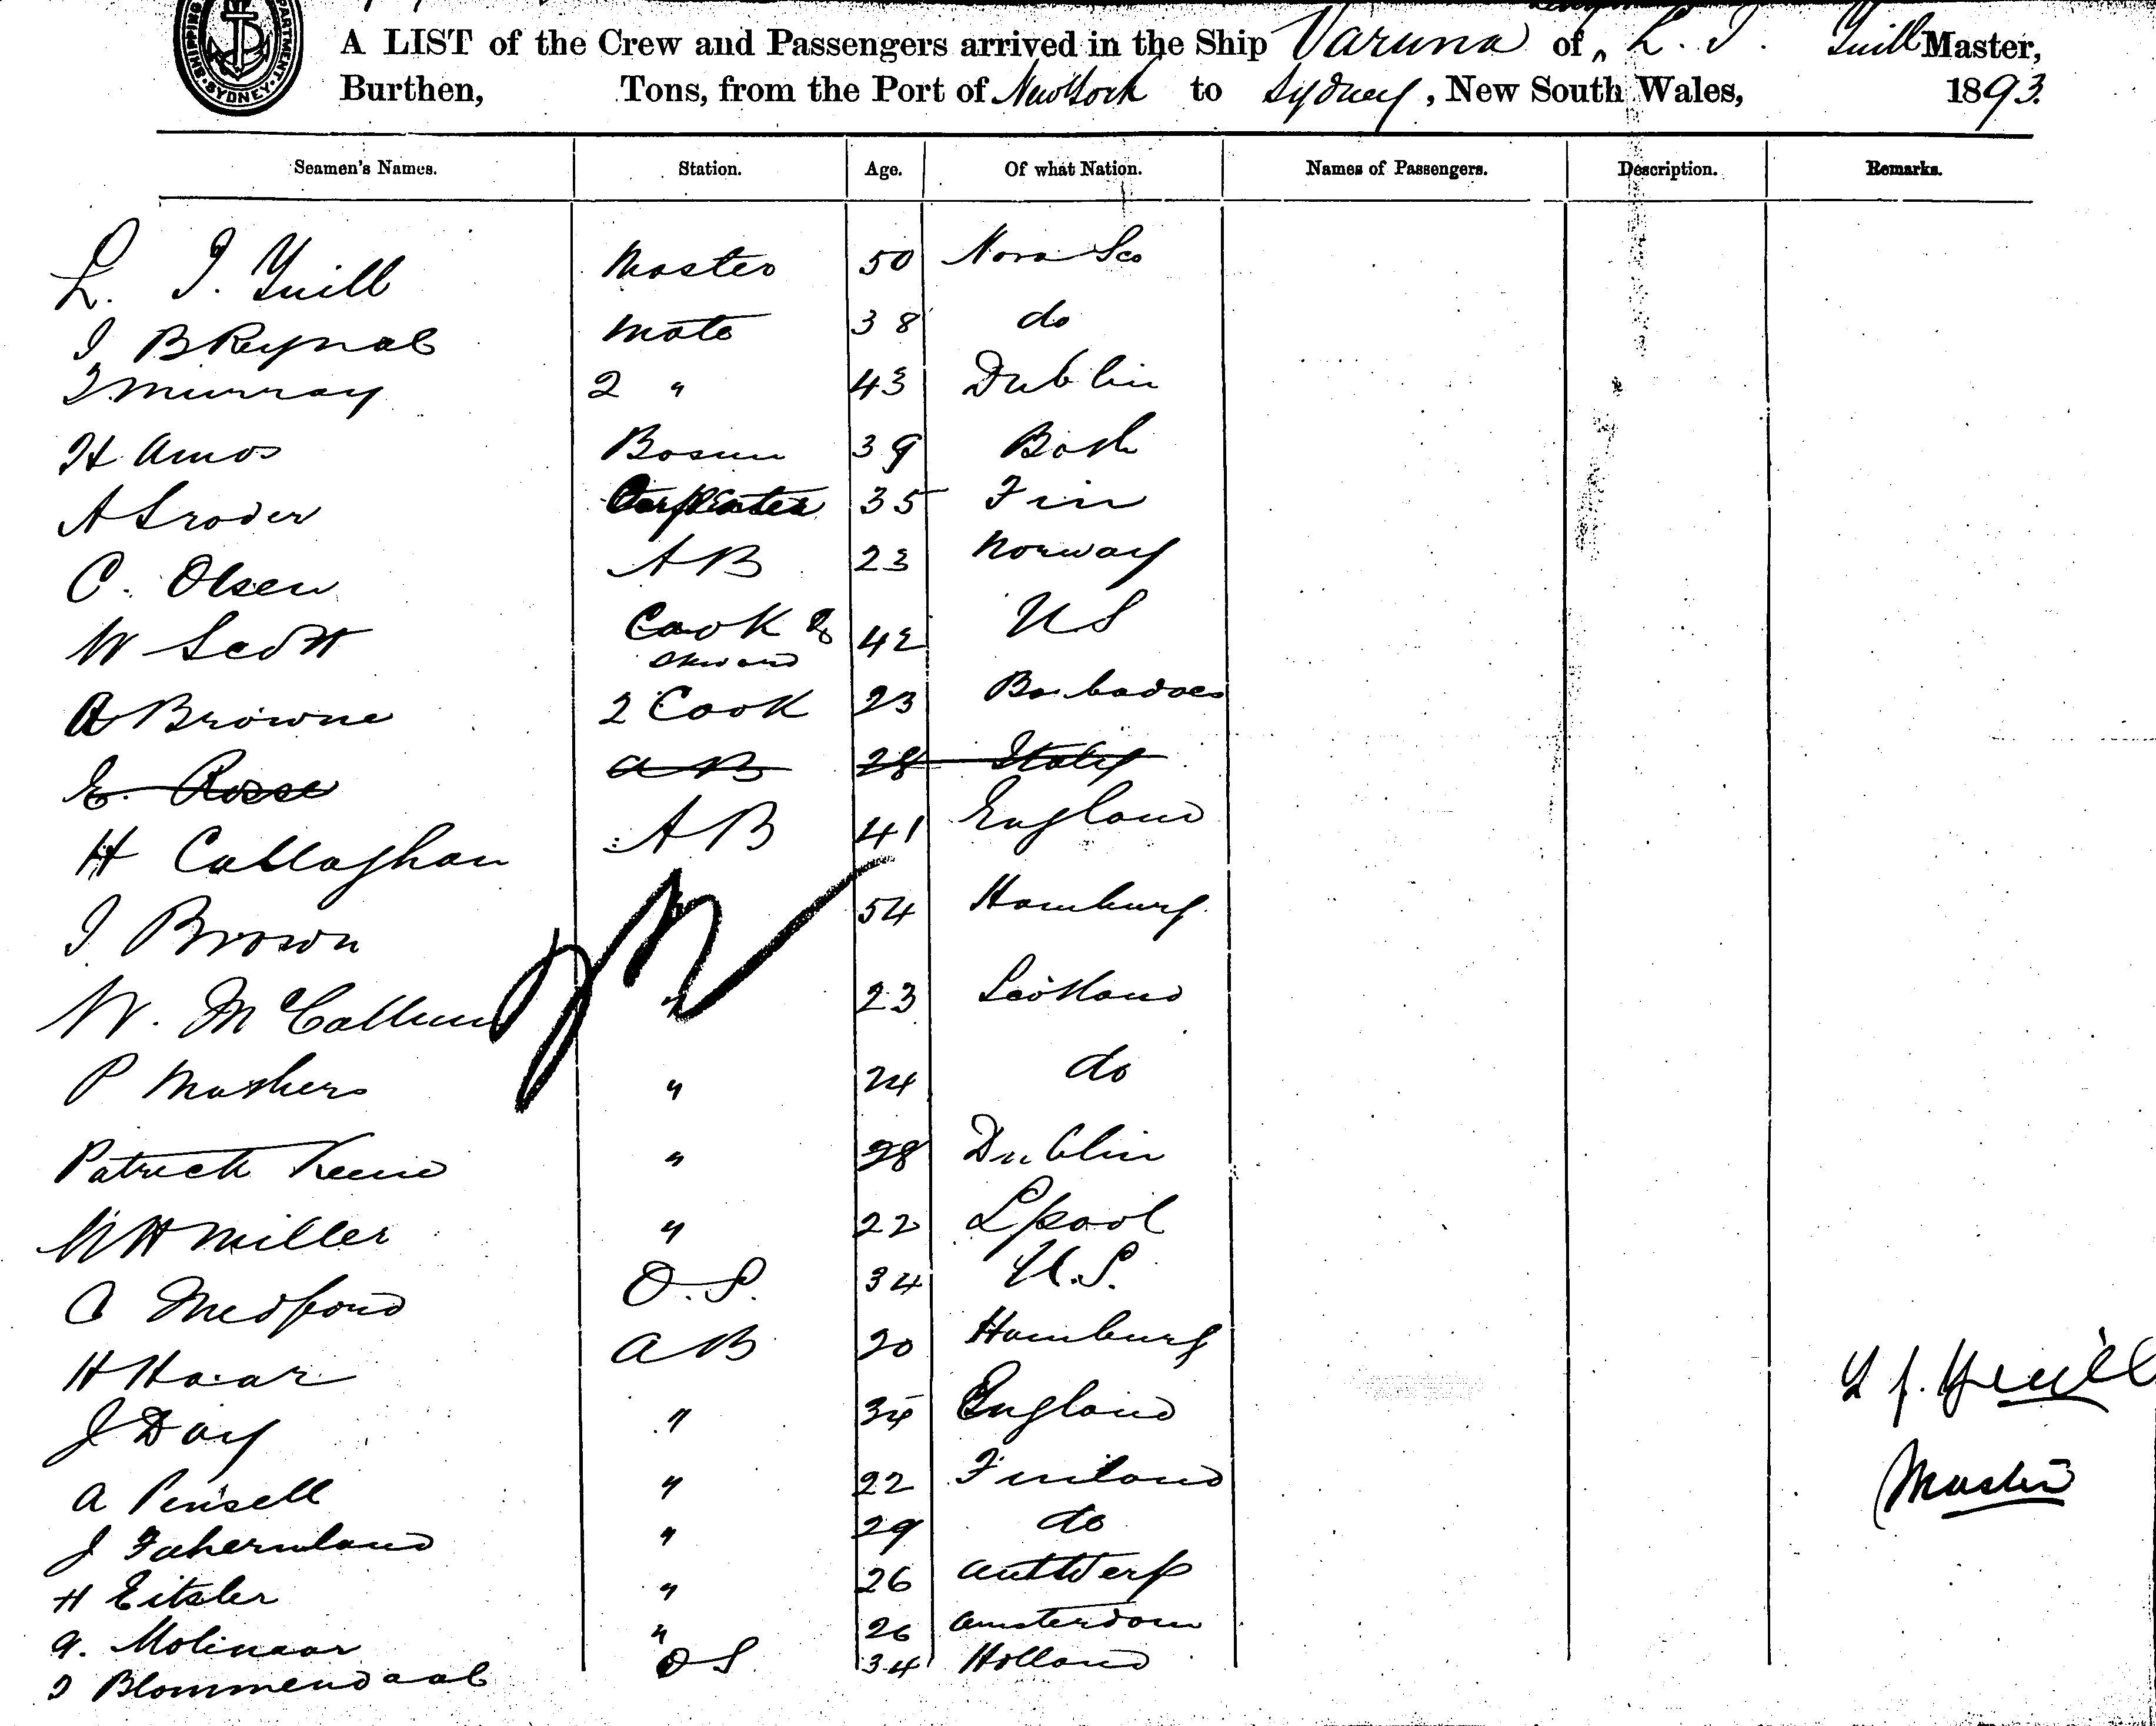 SHIPPING DEPARTMENT. SYDNEY.
A LIST of the Crew and Passengers arrived in the Ship Varuna of L. T. Yuill Master,
Burthen, Tons, from the Port of New York to Sydney, New South Wales, 1893.
Seamen's Names. Station. Age. Of what Nation. Names of Passengers. Description. Remarks.
L. T. Yuill Master 50 Nova Sco
B Mate 38 do
Murray 2 " 43 Dublin
H Amos Bosun 39 Bath
A Sroder Carpenter 35 Fin
C. Olsen AB 23 Norway
W Scott Cook & Steward 42 US
A Browne 2 Cook 23 Barbadoes
E. Rosse AB 28 Italy
H Callaghan AB 41 England
Brown 54 Hamburg
W. McCallum " 23 Scotland
P Mathers " 24 do
Patrick Keene " 28 Dublin
W H Miller " 22 Lpool
C Medford O.S. 34 U.S.
H Haar AB 20 Hamburg
J Day " 34 England
A Pensell " 22 Finland
J " 29 do
H Eitzler " 26 Anttwerp
A. Molinaar " 26 Amsterdam
Blommendaal OS 34 Holland
L J. Yuill
Master